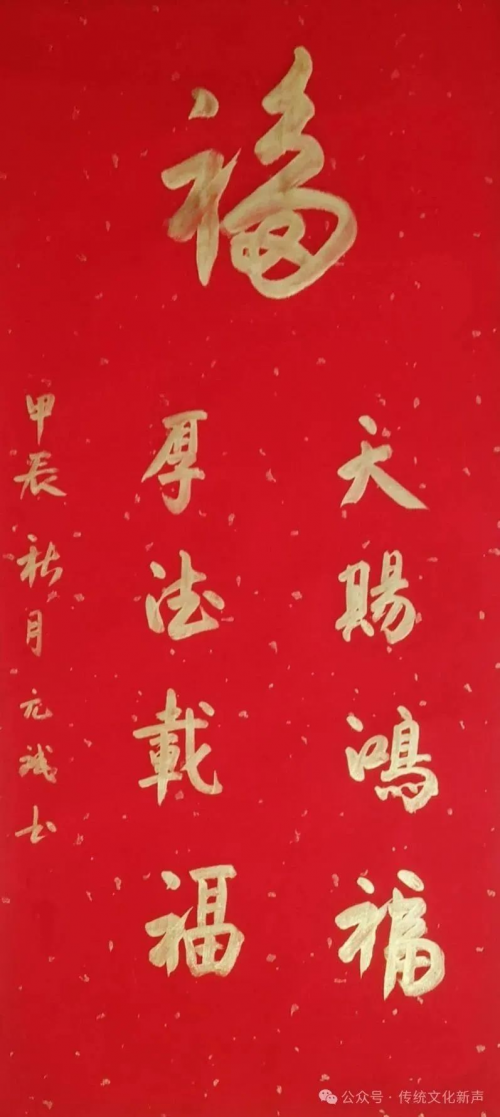 福
天赐鸿福
厚德載福
甲辰秋月元成书
公众号·传统文化新声